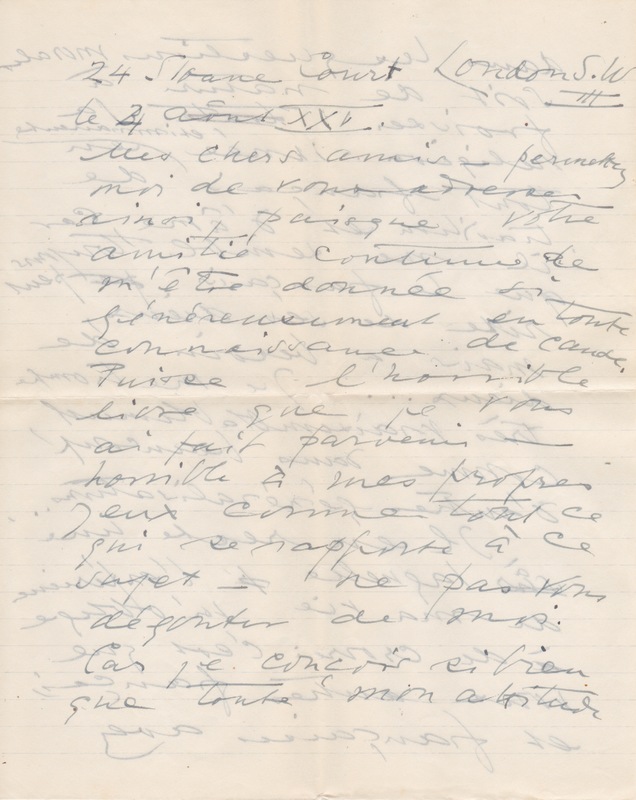 24 Sloane Court London S.W
III
le 4 août XXV.
Mes chers amis permettez
moi de vous adresser
ainsi puisque votre
amitié continue de
m'être donnée si
généreusement en toute
connaissance de cause.
Puisse l'horrible
livre que je vous
ai fait parvenir —
horrible à mes propres
yeux comme tout ce
qui se rapporte à ce
sujet — ne pas vous
dégoûter de moi.
Car je conçois si bien
que toute mon attitude